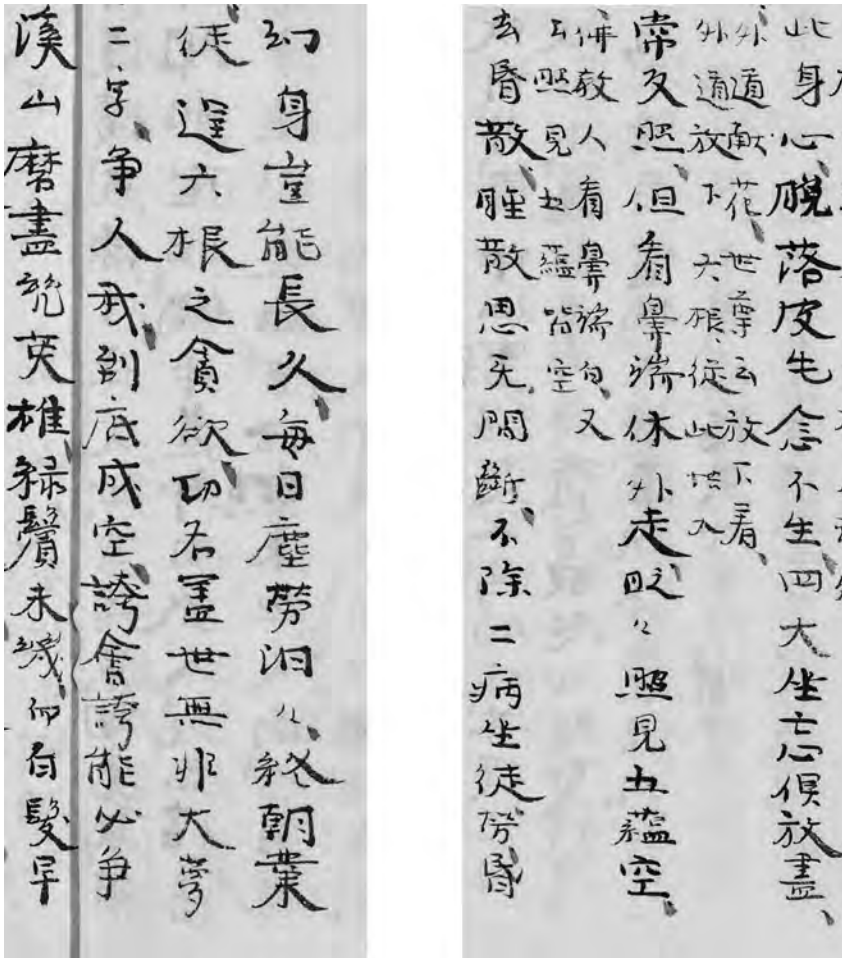 此身心脫落皮毛念不生四大坐忘俱放盡
外道獻花世尊云放下着
外道放下六根從此入
常反照但看鼻端休外走照見五蘊空
佛教人看鼻端白又
云照見五蘊皆空
去昏散睡散思无間斷不除二病坐徒劳昏
幻身豈能長久每日塵勞汩々終朝業
徒逞六根之貪欲功名盖世無非大夢
二字争人我到底成空誇會誇能必争
溪山磨盡英雄緑鬢未幾而白髮早